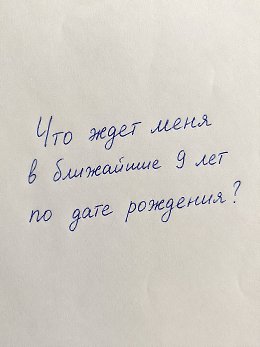 Что ждет меня
в ближайшие 9 лет
по дате рождения?